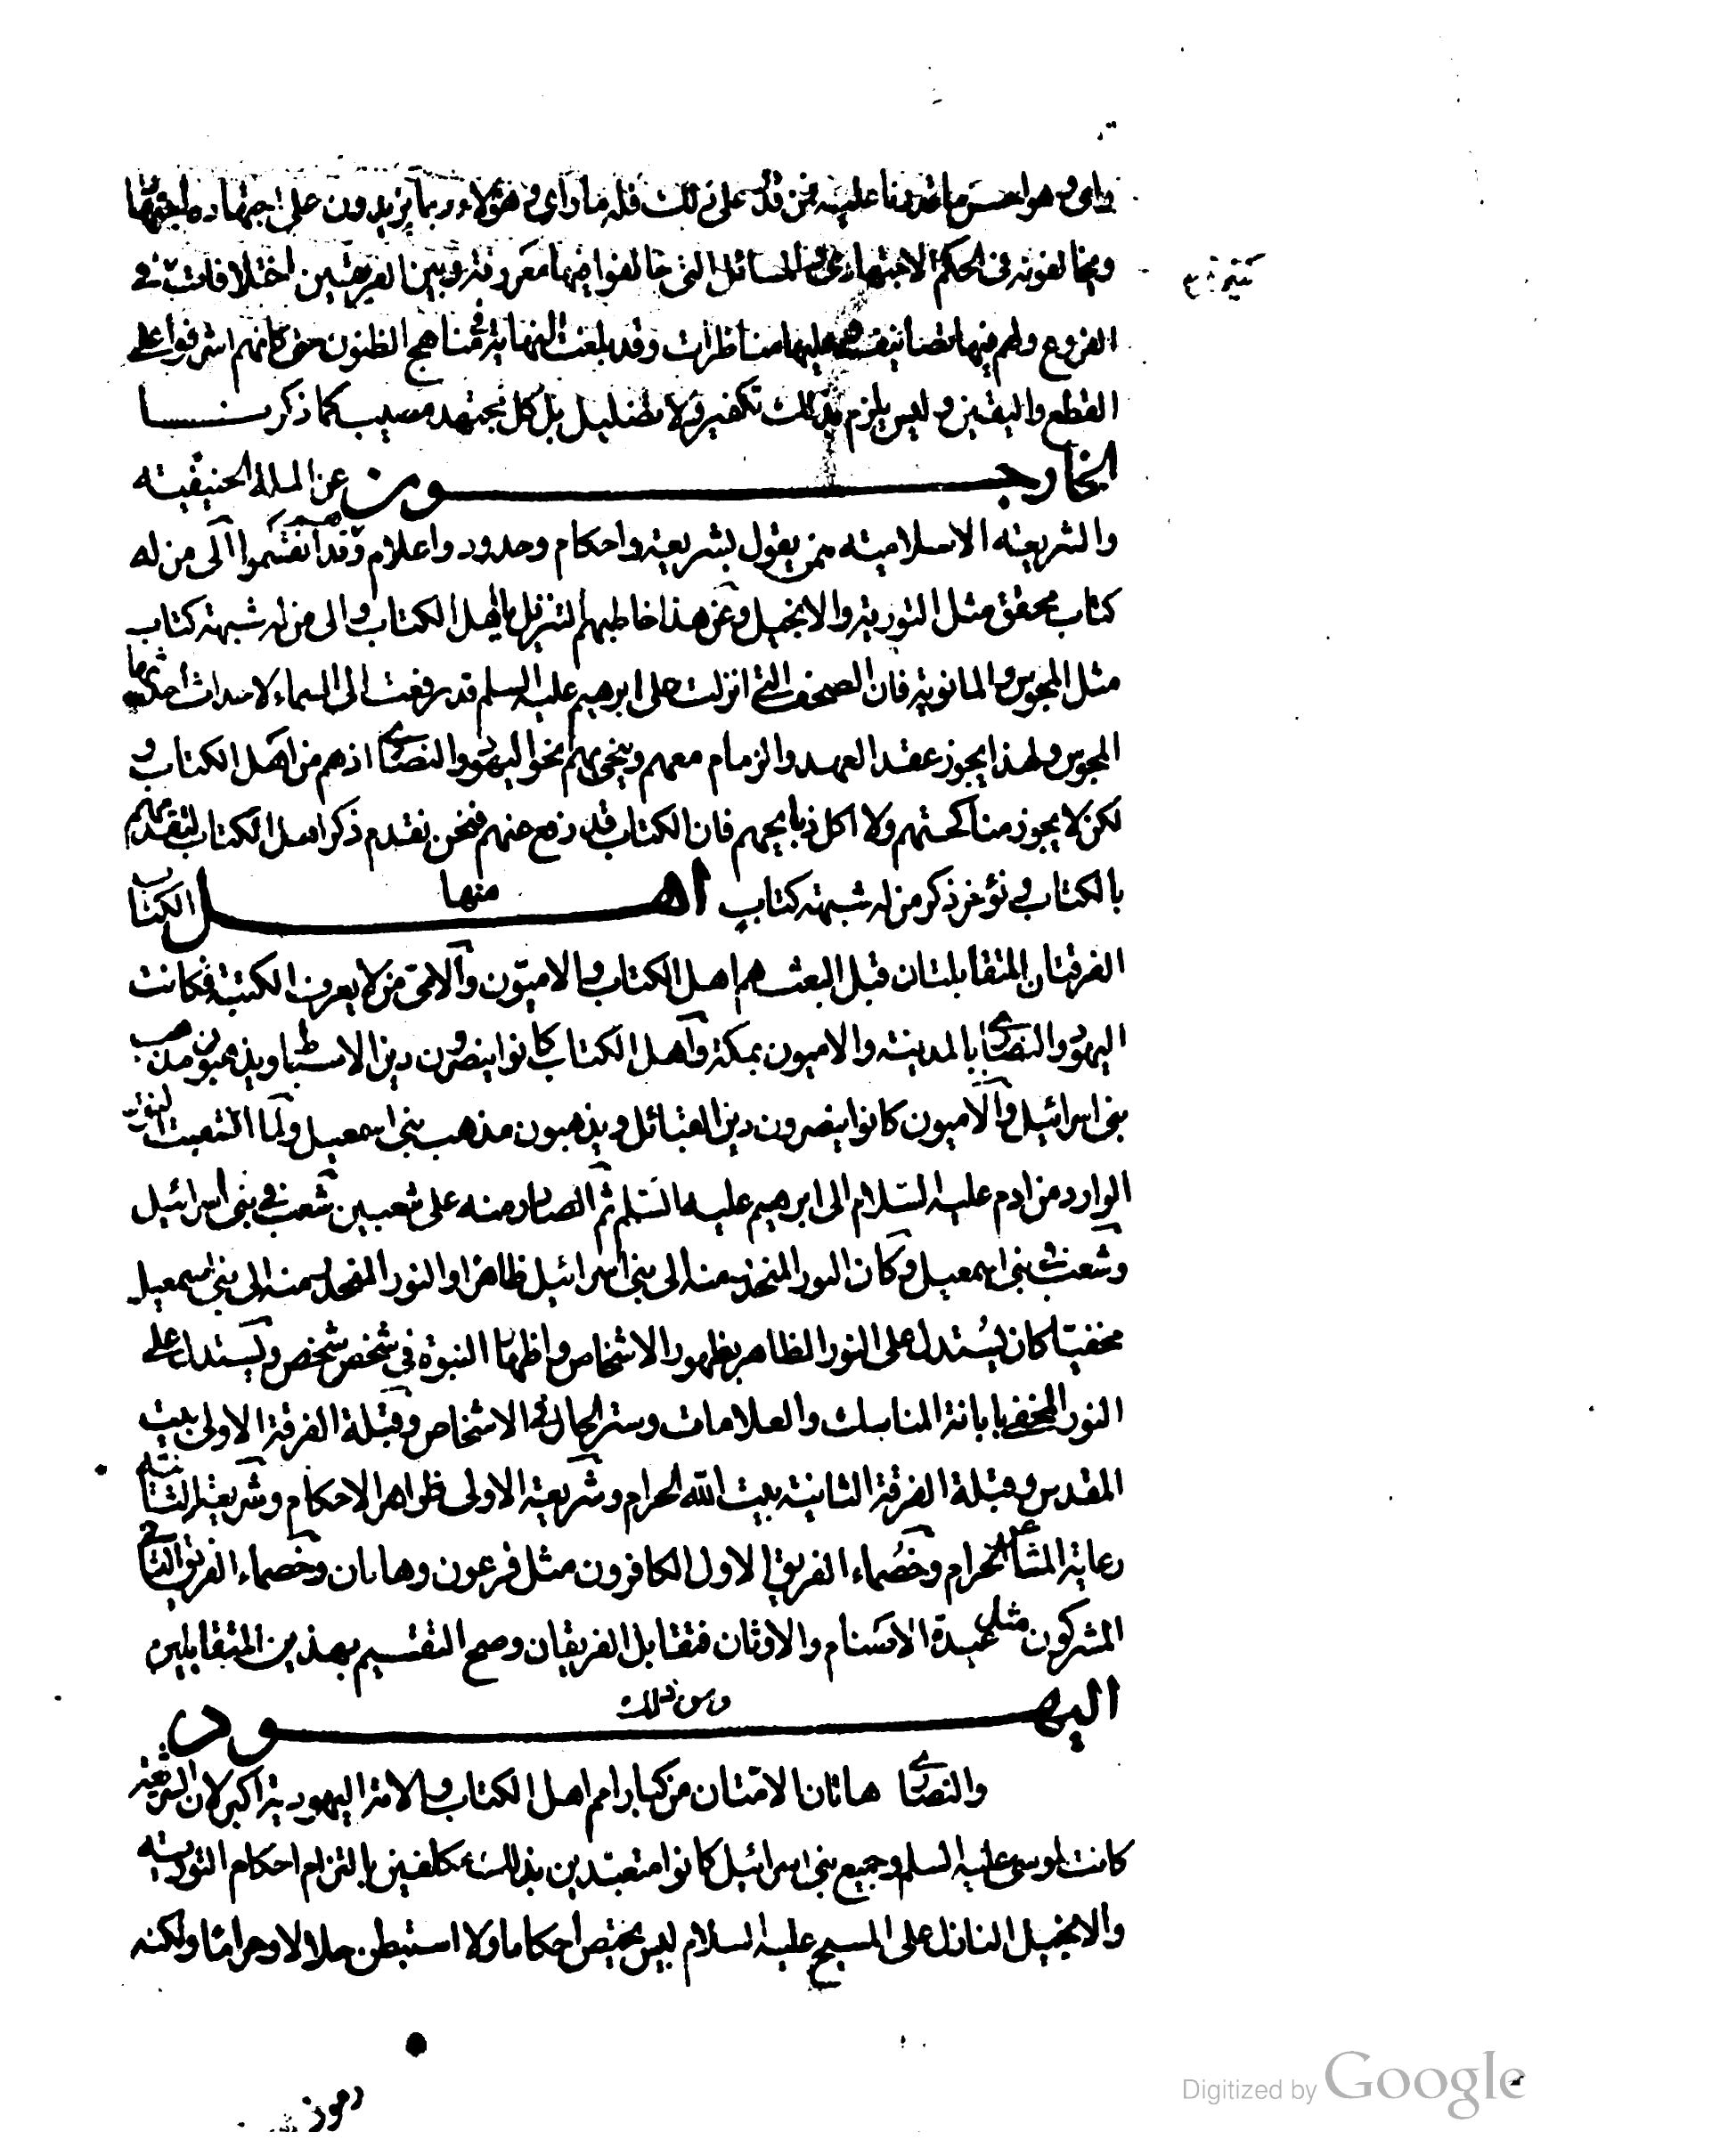 راى وهو احسن ما قدرنا عليه فمن قدر على ذلك فله ما راى وهؤلاء ربما يزيدون على اجتهاده اجتهادا
ويخالفونه فى الحكم الاجتهادى والمسائل التى خالفوا فيها معروفة وبين الفريقين اختلافات كثيرة فى
الفروع ولهم فيها تصانيف وعليها مناظرات وقد بلغت النهاية فى مناهج الظنون حتى كانهم اشرفوا على
القطع واليقين وليس يلزم بذلك تكفير ولا تضليل بل كل مجتهد مصيب كما ذكرنا
الخارجون عن الملة الحنيفية
والشريعة الاسلامية ممن يقول بشريعة واحكام وحدود واعلام وقد انقسموا الى من له
كتاب محقق مثل التورية والانجيل وعن هذا خاطبهم التنزيل ياهل الكتاب والى من له شبهة كتاب
مثل المجوس والمانوية فان الصحف التى انزلت على ابرهيم عليه السلم قد رفعت الى السماء لاحداث احدثها
المجوس ولهذا يجوز عقد العهد والزمام معهم وينحى بهم نحو اليهود والنصارى اذ هم من اهل الكتاب و
لكن لا يجوز مناكحتهم ولا اكل ذبايحهم فان الكتاب قد رفع عنهم فنحن نقدم ذكر اهل الكتاب لتقدمهم
بالكتاب و نؤخر ذكر من له شبهة كتاب اهل منها الكتاب
الفرقتان المتقابلتان قبل البعث هم اهل الكتاب والاميون والامى من لا يعرف الكتبة فكانت
اليهود والنصارى بالمدينة والاميون بمكة واهل الكتاب كانوا ينصرون دين الاسباط ويذهبون مذهب
بنى اسرائيل والاميون كانوا ينصرون دين القبائل ويذهبون مذهب بنى اسمعيل ولما انشعبت النور
الوارد من ادم عليه السلام الى ابرهيم عليه السلم ثم الصادر منه على شعبين شعب فى بنى اسرائيل
وشعب فى بنى اسمعيل وكان النور المنحدر منه الى بنى اسرائيل ظاهرا والنور المنحدر منه الى بنى اسمعيل
مخفيا كان يستدل على النور الظاهر بظهور الاشخاص واظهار النبوة فى شخص شخص ويستدل على
النور المخفى بابانة المناسك والعلامات وستر الحال فى الاشخاص وقبلة الفرقة الاولى بيت
المقدس وقبلة الفرقة الثانية بيت الله الحرام وشريعة الاولى ظواهر الاحكام وشريعة الثانية
رعاية المشاعر الحرام وخصماء الفريق الاول الكافرون مثل فرعون وهامان وخصماء الفريق الثانى
المشركون مثل عبدة الاصنام والاوثان فتقابل الفريقان وصح التقسيم بهذين المتقابلين
اليهود ومن ذلك
والنصارى هاتان الامتان من كبار امم اهل الكتاب والامة اليهودية اكبر لان الشريعة
كانت لموسى عليه السلم وجميع بنى اسرائيل كانوا متعبدين بذلك مكلفين بالتزام احكام التورية
والانجيل النازل على المسيح عليه السلام ليس يختص احكاما ولا استبطن حلالا وحراما ولكنه
رموز
Digitized by Google